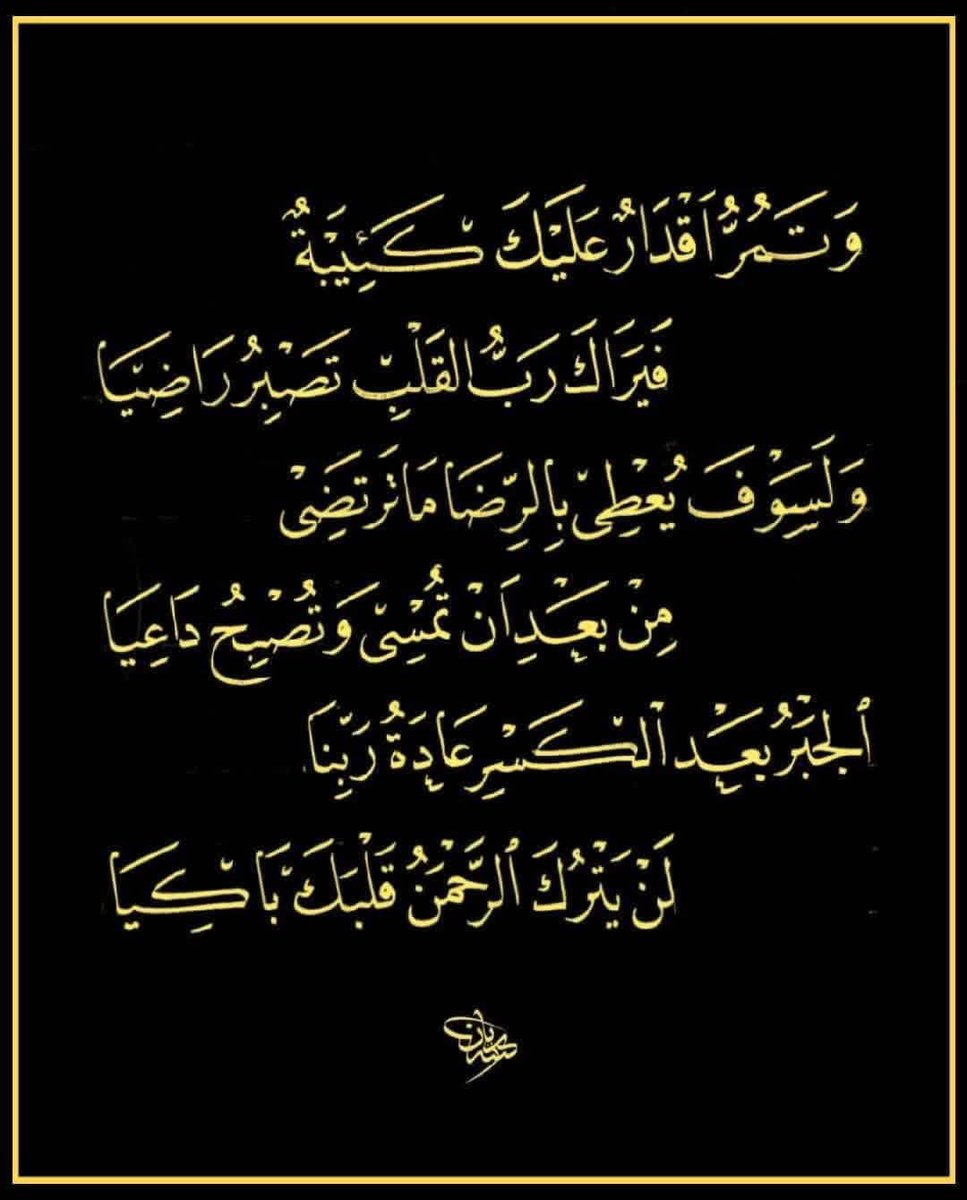 وَتَمُرُّ اَقْدَارٌ عَلَيْكَ كَئِيبَةٌ
فَيَرَاكَ رَبُّ القَلْبِ تَصْبِرُ رَاضِيَا
وَلَسَوْفَ يُعْطِي بِالرِّضَا مَا تَرتَضِيْ
مِنْ بَعْدِ اَنْ تُمْسِي وَتُصْبِحُ دَاعِيَا
ٱلجَبْرُ بَعْدَ الْكَسْرِ عَادَةُ رَبِّنَا
لَنْ يَتْرُكَ ٱلرَّحْمَنُ قَلْبَكَ بَاكِيَا